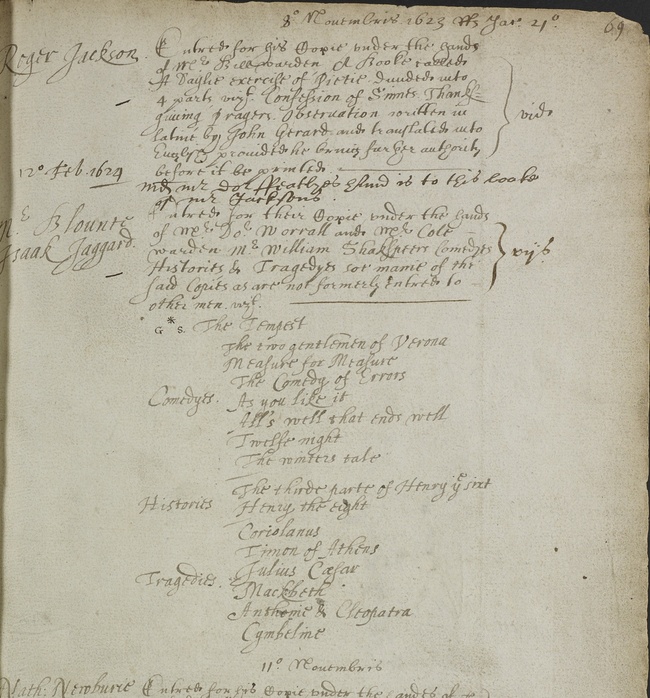 8º Novembris 1623 Rs Jac. 21º. 69
Roger Jackson. Entred for his Copie vnder the hands
of Mr Bill warden A Booke called
A Daylie exercise of Pietie Deuided into
4 parts vizt. Confession of Sinnes. Thanks=
giuing prayers. Obseruation written in
latine by John Gerard and translated into vide
English prouided he bring further authority
before it be printed.
12º. Feb. 1624 Md Mr Doc. ffeatlyes hand is to this booke
of Mr Jacksons.
Mr Blounte Entred for their Copie vnder the hands
Isaak Jaggard. of Mr Doc. Worrall and Mr Cole
warden Mr William Shakspeers Comedyes vijs
Histories & Tragedyes soe manie of the
said Copies as are not formerly entred to
other men. vizt.
G * S. The Tempest
The two gentlemen of Verona
Measure for Measure
The Comedy of Errors
Comedyes. As you like it
All's well that ends well
Twelfe night
The winters tale
The thirde parte of Henry ye sixt
Histories Henry the eight
Coriolanus
Timon of Athens
Julius Cæsar
Tragedies. Mackbeth
Anthonie & Cleopatra
Cymbeline
11º. Nouembris
Nath: Newburie Entred for his Copie vnder the handes of